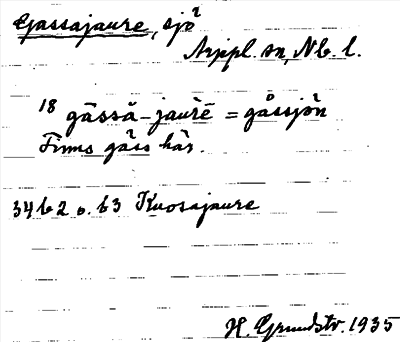 Gassajaure, sjö
Arjepl. sn, Nb. l.
18 gāssā-jaurē = gåssjön
Finns gäss här.
34b2 o. b3 Kuosajaure
H. Grundstr. 1935